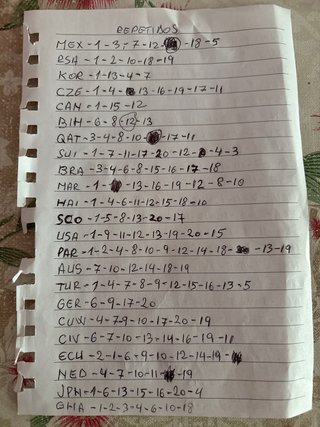 REPETIDOS
MEX-1-3-7-12-18-5
RSA-1-2-10-18-19
KOR-1-13-4-7
CZE-1-4-13-16-19-17-11
CAN-1-15-12
BIH-6-8-12-13
QAT-3-4-8-10-17-11
SUI-1-7-11-17-20-12-4-3
BRA-3-4-6-8-15-16-17-18
MAR-1-13-16-19-12-8-10
HAI-1-4-6-11-12-15-18-10
SCO-1-5-8-13-20-17
USA-1-9-11-12-13-19-20-15
PAR-1-2-4-8-10-9-12-14-18-13-19
AUS-7-10-12-14-18-19
TUR-1-4-7-8-9-12-15-16-13-5
GER-6-9-17-20
CUW-4-7-9-10-17-20-19
CIV-6-7-10-13-14-16-19-11
ECU-2-1-6-9-10-12-14-19
NED-4-7-10-11-19
JPN-1-6-13-15-16-20-4
GHA-1-2-3-4-6-10-18